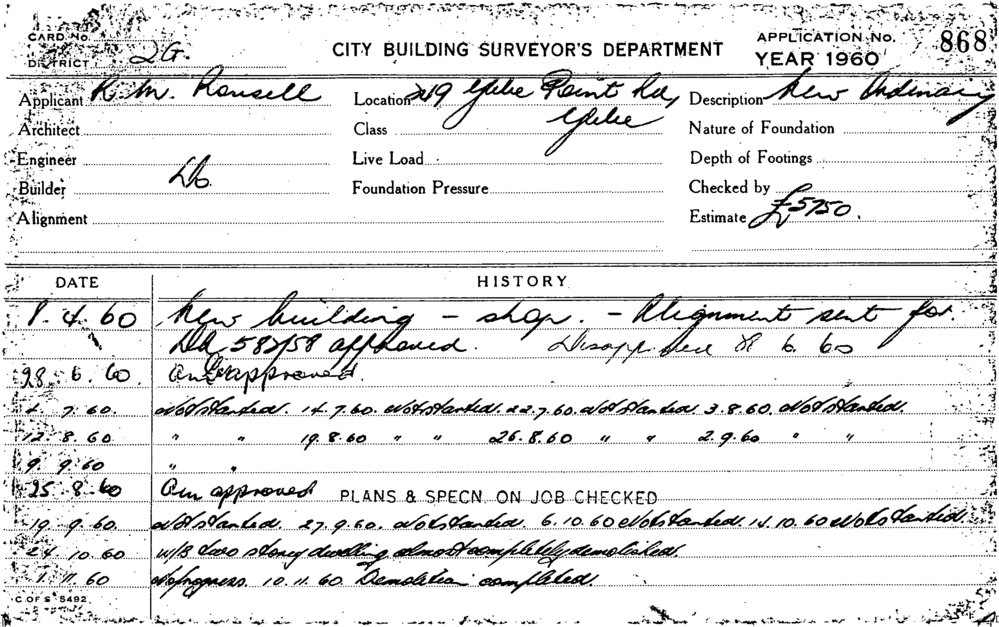 CARD No.
DISTRICT 2G.
CITY BUILDING SURVEYOR'S DEPARTMENT
APPLICATION No. 868
YEAR 1960
Applicant R. M. Ronsell
Location 249 Glebe Point Rd,
Glebe
Description New Ordinary
Architect
Class
Nature of Foundation
Engineer
Live Load
Depth of Footings
Builder Do.
Foundation Pressure
Checked by
Alignment
Estimate £5750.
DATE HISTORY
8. 4. 60 New building - shop. - Alignment sent for.
DA 582/58 approved. Disapproved 6. 60
28. 6. 60. approved.
4. 7. 60. Not started. 14.7.60. Not started. 22.7.60. Not started. 3.8.60. Not started.
12. 8. 60 " " 19.8.60 " " 26.8.60 " " 2.9.60 " "
9. 9. 60 " "
25. 8. 60 Am approved PLANS & SPECN. ON JOB CHECKED
19. 9. 60. Not started. 27.9.60. Not started. 6.10.60 Not started. 14.10.60 Not started.
24. 10. 60 W/B two storey dwelling almost completely demolished.
1. 11. 60 No progress. 10.11.60 Demolition completed.
C OF S 5492